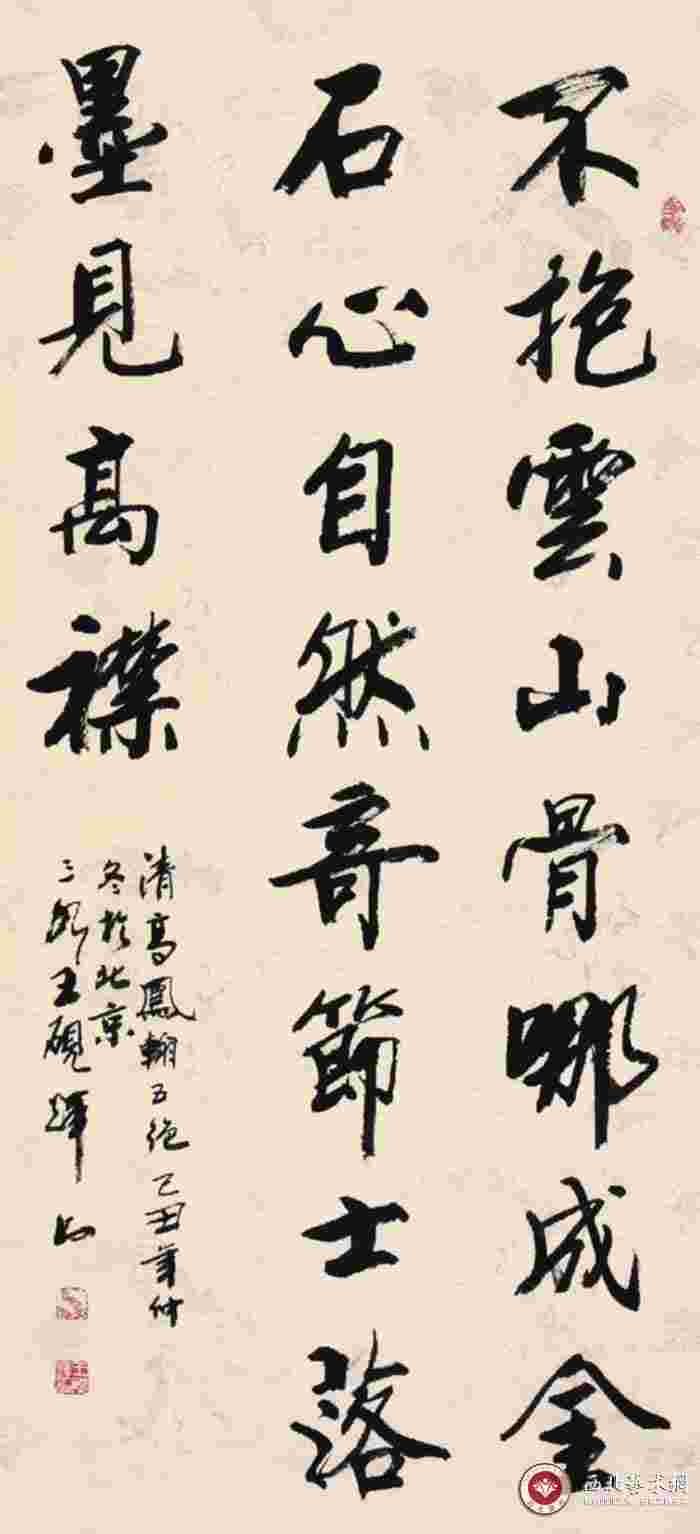 不抱雲山骨哪成金
石心自然竒節士落
墨見高襟
清高鳳翰五絕己丑年仲
冬於北京
三王硯輝書
西北藝术網